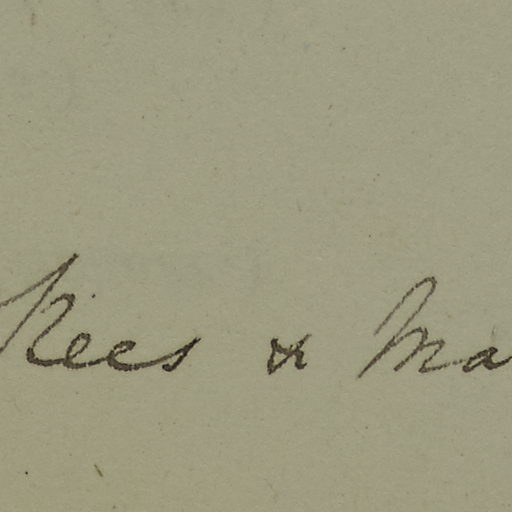 Rees & Ma